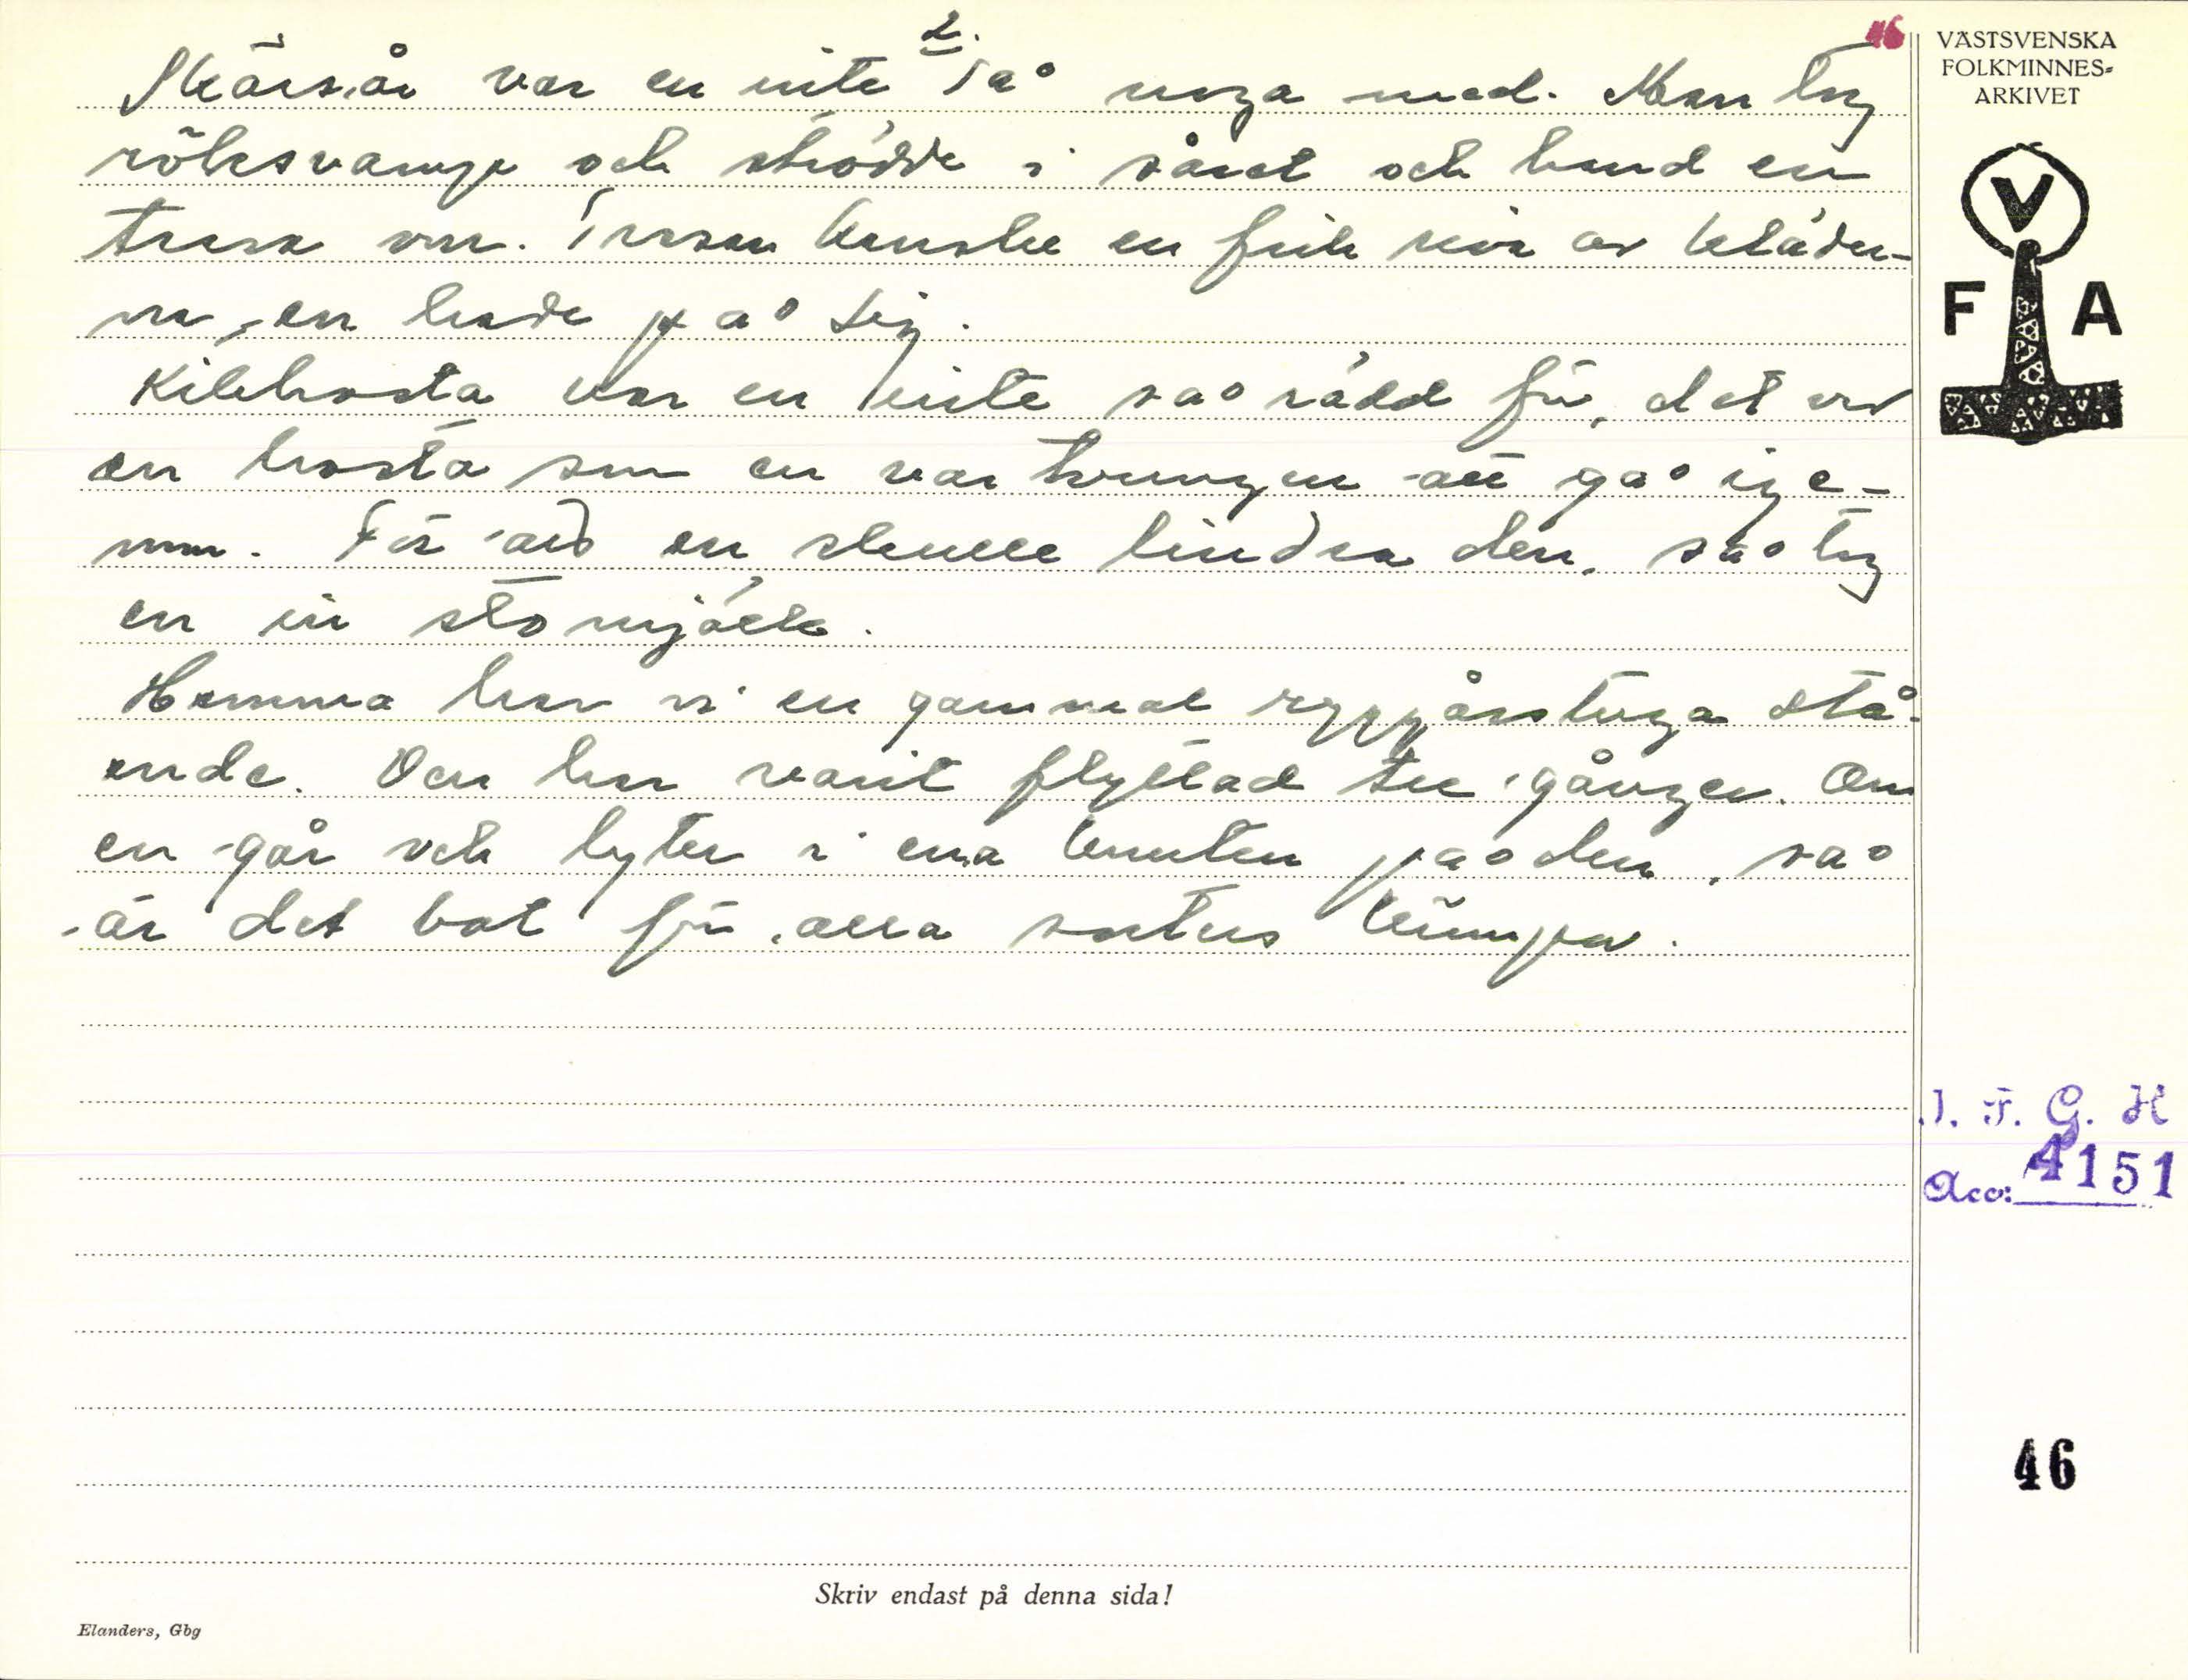 2.
46
Skärsår var en inte så noga med. Man tog
röksvamp och strödde i såret och band en
trasa om. Trasan kanske en fick riva av kläder-
na, en hade på sig.
Kikhosta var en inte så rädd för, det var
en hosta som en var tvungen att gå ige-
nom. För att en skulle lindra den, så tog
en in stomjölk.
Hemma har vi en gammal ryggåsstuga stå-
ende. Den har varit flyttad tre gånger. Om
en går och lyter i ena knuten på den, så
är det bot för alla sorters krämpor.
VÄSTSVENSKA
FOLKMINNES-
ARKIVET
V
F A
I. F. G. H
Acc: 4151
46
Skriv endast på denna sida!
Elanders, Gbg